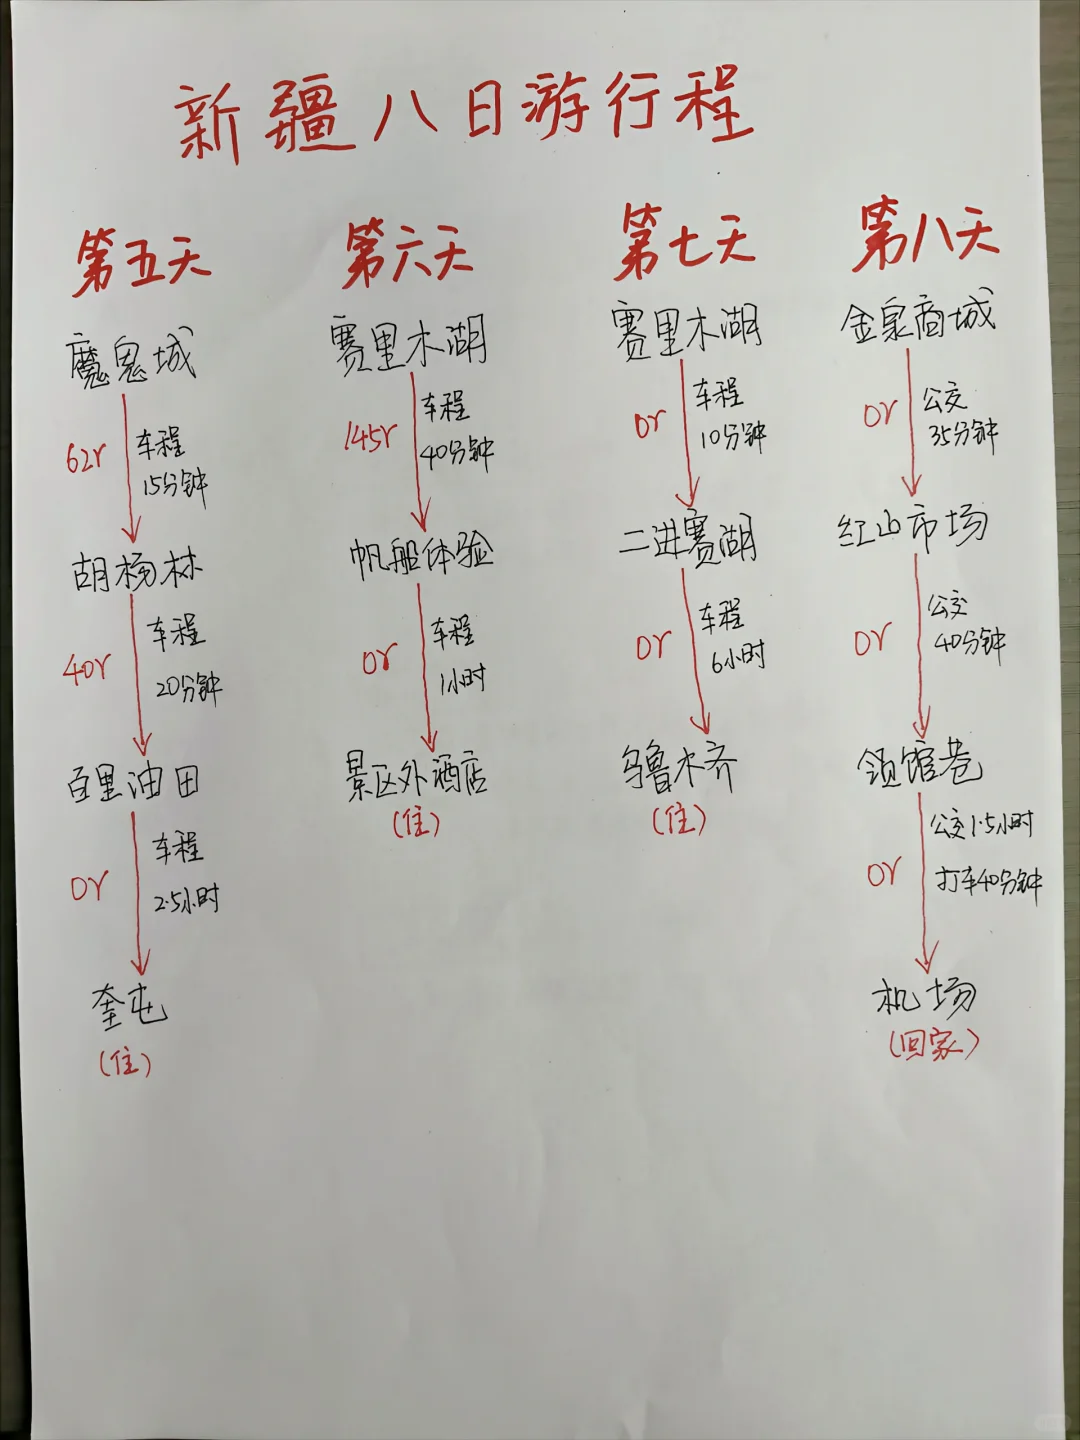 新疆八日游行程
第五天
魔鬼城
62r
车程
15分钟
胡杨林
40r
车程
20分钟
百里油田
0r
车程
2.5小时
奎屯
(住)
第六天
赛里木湖
145r
车程
40分钟
帆船体验
0r
车程
1小时
景区外酒店
(住)
第七天
赛里木湖
0r
车程
10分钟
二进赛湖
0r
车程
6小时
乌鲁木齐
(住)
第八天
金泉商城
0r
公交
35分钟
红山市场
0r
公交
40分钟
领馆巷
0r
公交1.5小时
打车40分钟
机场
(回家)